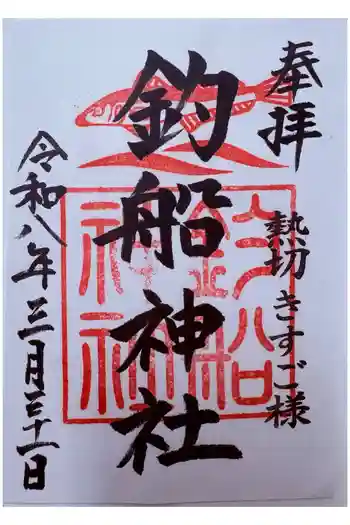 奉拝
熱切きすご様
釣船神社
令和八年三月三十一日
釣船
神社